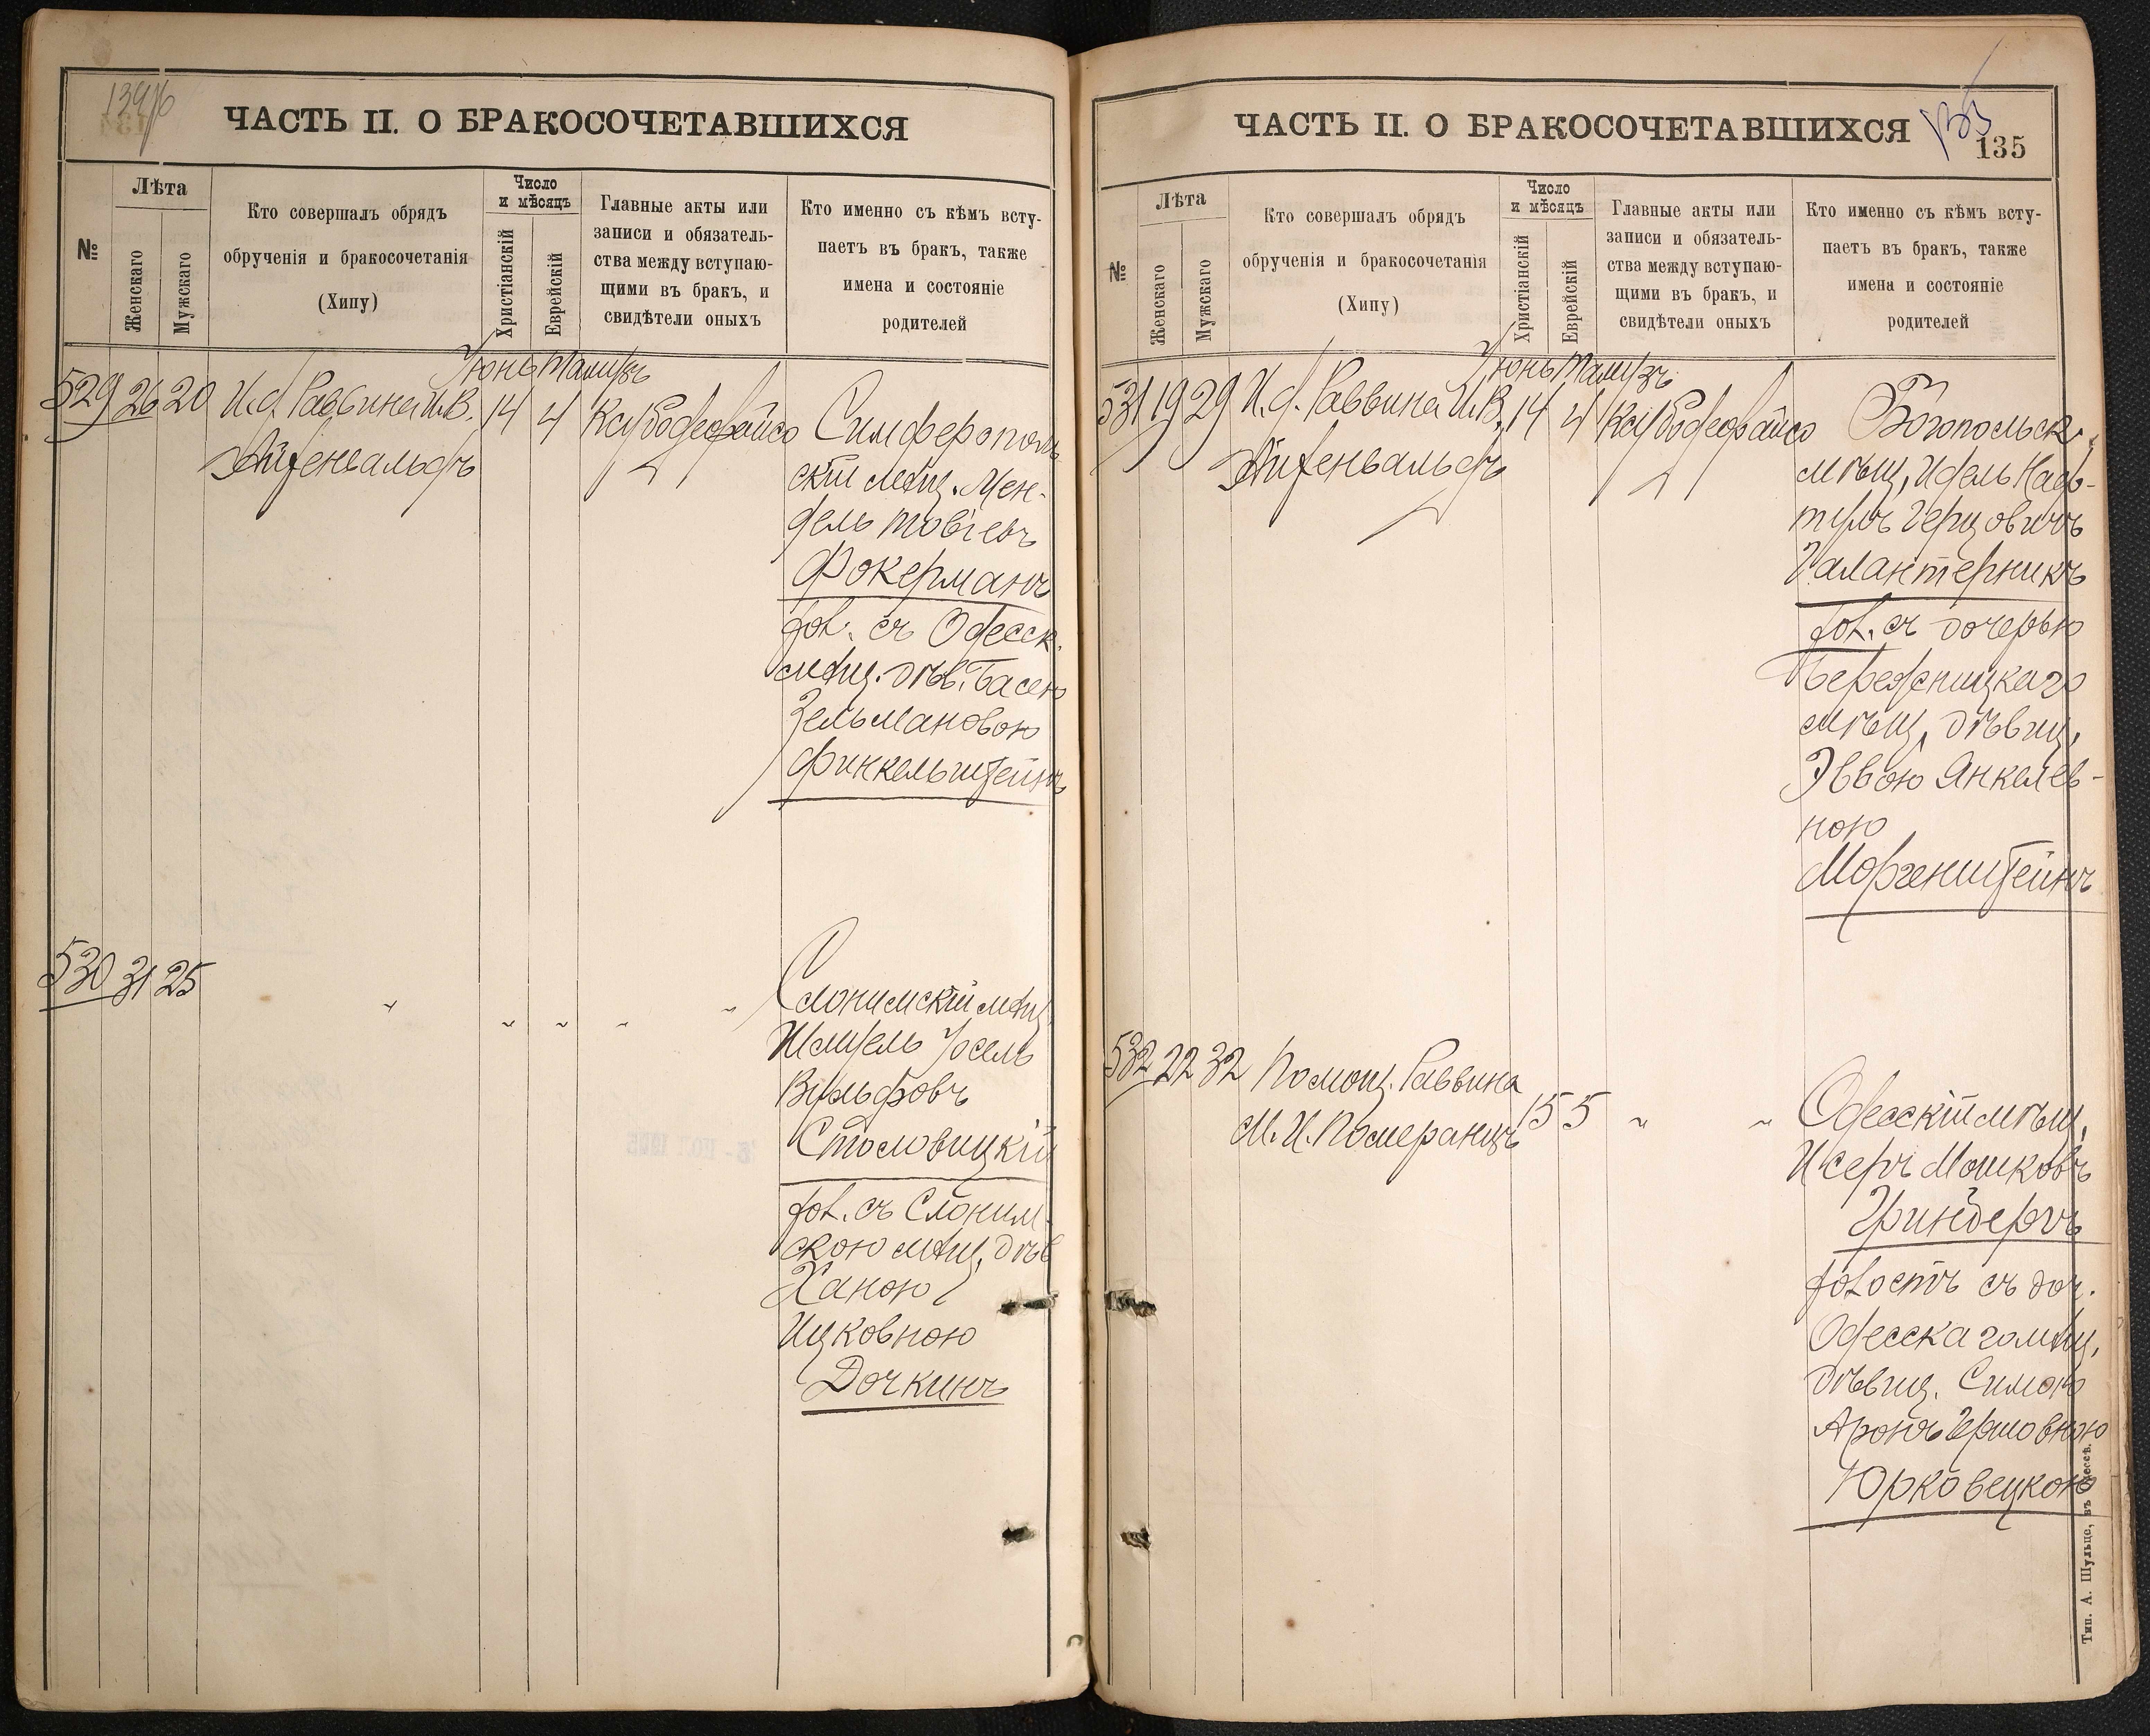 ЧАСТЬ II. О БРАКОСОЧЕТАВШИХСЯ
№
Лѣта
Женскаго
Мужскаго
Кто совершалъ обрядъ
обрученія и бракосочетанія
(Хипу)
Число
и мѣсяцъ
Христіанскій
Еврейскій
Главные акты или
записи и обязатель-
ства между вступаю-
щими въ бракъ, и
свидѣтели оныхъ
Кто именно съ кѣмъ всту-
паетъ въ бракъ, также
имена и состояніе
родителей
Іюнь Тамузъ
529 26 20 И.д. Раввина И.В. 14 4
Айзенвальдъ
Симферополь
скій мѣщ. Мен-
дель Товіевъ
Фокерманъ
хол. съ Одесск.
мѣщ. дѣв. Басею
Зельмановою
Финкельштейнъ
530 31 25 " " " " "
Слонимскій мѣщ.
Шмуель Іосель
Вульфовъ
Столовицкій
хол. съ Слоним-
скою мѣщ. дѣв
Ханою
Ицковною
Дочкинъ
ЧАСТЬ II. О БРАКОСОЧЕТАВШИХСЯ
135
135
№
Лѣта
Женскаго
Мужскаго
Кто совершалъ обрядъ
обрученія и бракосочетанія
(Хипу)
Число
и мѣсяцъ
Христіанскій
Еврейскій
Главные акты или
записи и обязатель-
ства между вступаю-
щими въ бракъ, и
свидѣтели оныхъ
Кто именно съ кѣмъ всту-
паетъ въ бракъ, также
имена и состояніе
родителей
Іюнь Тамузъ
531 19 29 И.д. Раввина И.В. 14 4
Айзенвальдъ
Богопольск.
мѣщ. Идель Наф-
тулъ Герцовичъ
Галантерникъ
хол. съ дочерью
Бережницкаго
мѣщ. дѣвиц.
Эввою Янкелев-
ною
Моргенштейнъ
532 22 32 Помощ. Раввина
М. И. Померанцъ 15 5 " "
Одесскій мѣщ.
Исеръ Мошковъ
Гриндеръ
холостъ съ доч.
Одесскаго мѣщ.
дѣвиц. Симою
Аронъ Гершовною
Юрковецкою
Тип. А. Шульце, въ Одессѣ.